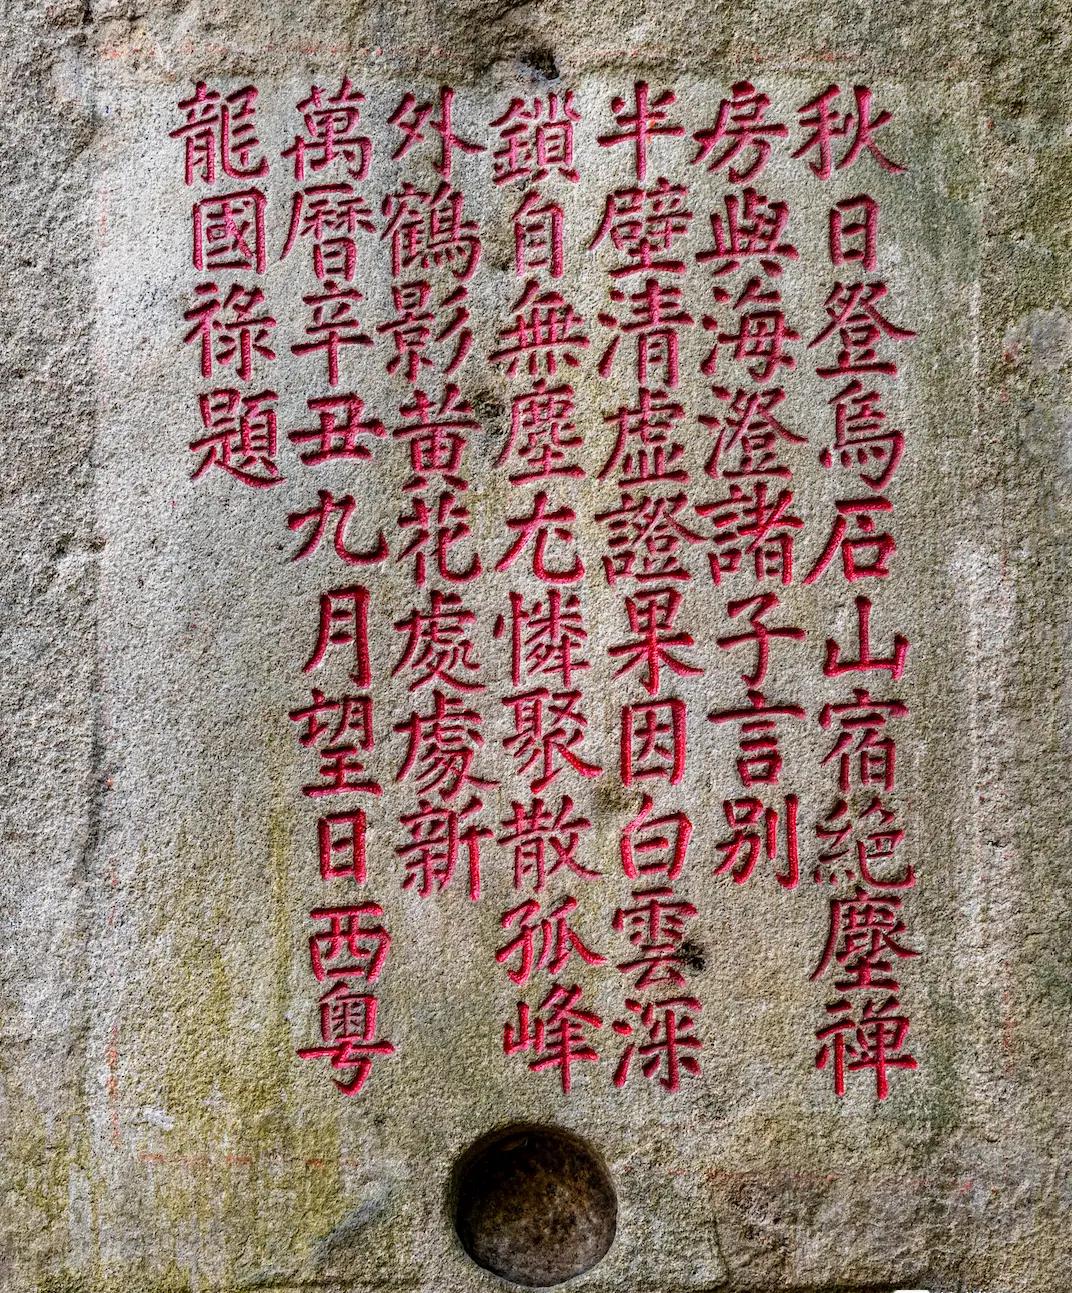 秋日登烏石山宿絕塵禅
房與海澄諸子言别
半壁清虚證果因白雲深
鎖自無塵尢憐聚散孤峰
外鶴影黄花處處新
萬曆辛丑九月望日西粤
龍國祿題